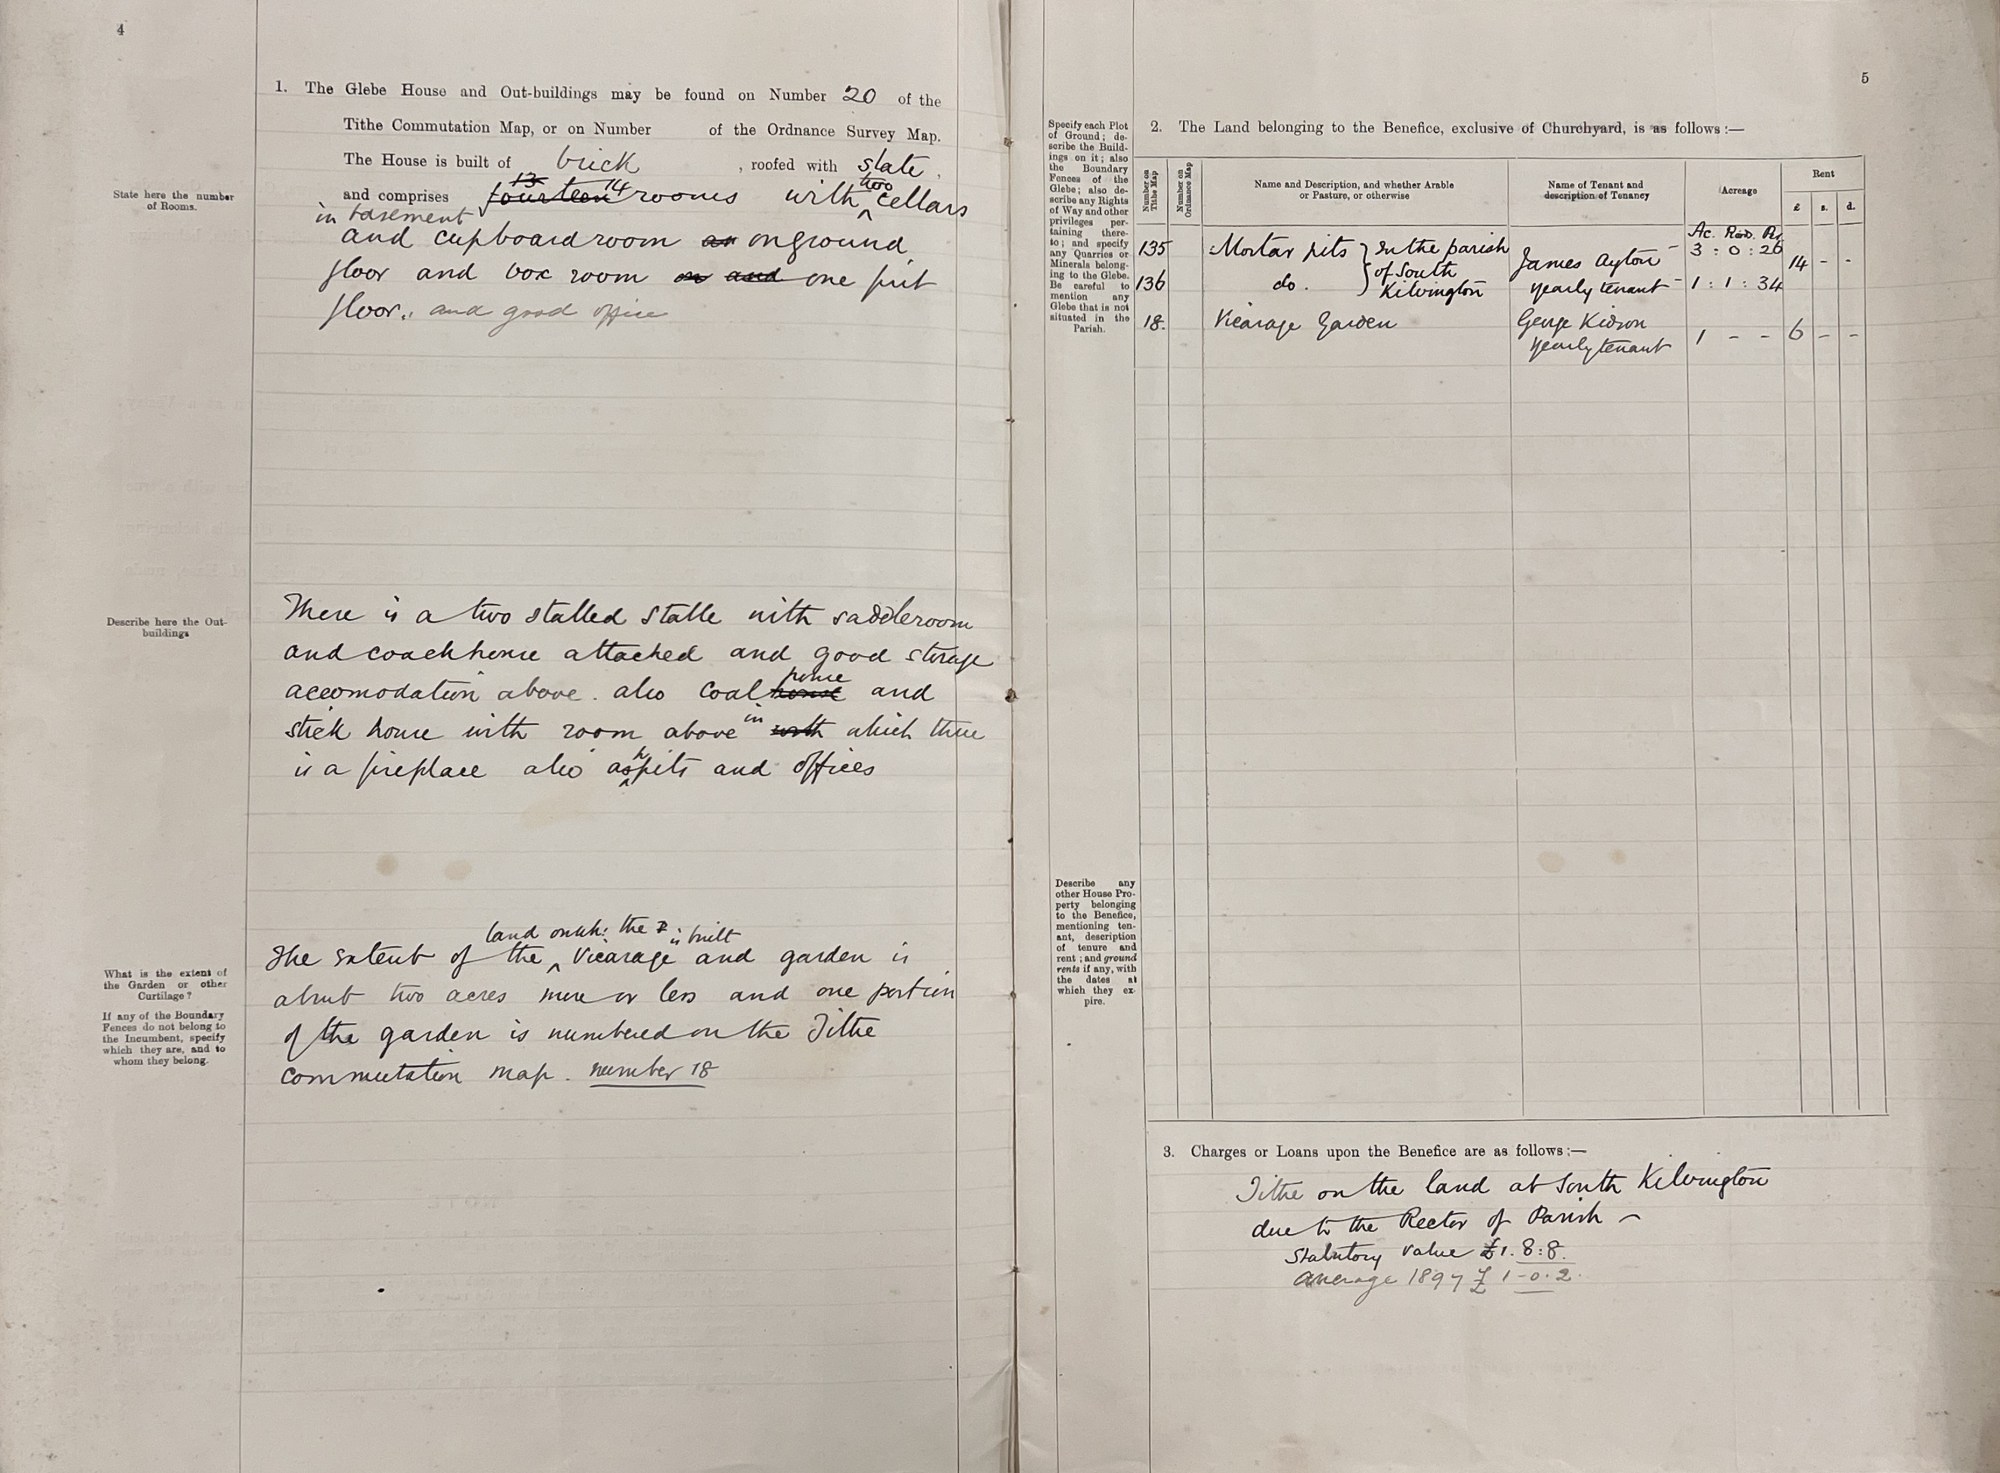 4
1. The Glebe House and Out-buildings may be found on Number 20 of the
Tithe Commutation Map, or on Number of the Ordnance Survey Map.
The House is built of brick , roofed with slate ,
State here the number
of Rooms.
13 14 two
and comprises fourteen rooms with ^ cellars
in basement
and cupboard room on onground
floor and box room on and one first
floor., and good office
Describe here the Out-
buildings
There is a two stalled stable with saddleroom
and coachhouse attached and good storage
accomodation above. also coal house house and
stick house with room above in with which there
is a fireplace also ashpits and offices
What is the extent of
the Garden or other
Curtilage?
If any of the Boundary
Fences do not belong to
the Incumbent, specify
which they are, and to
whom they belong.
land onwh: the is built
The extent of the ^ Vicarage and garden is
about two acres more or less and one portion
of the garden is numbered on the Tithe
commutation map. number 18
5
Specify each Plot
of Ground; de-
scribe the Build-
ings on it; also
the Boundary
Fences of the
Glebe; also de-
scribe any Rights
of Way and other
privileges per-
taining there-
to; and specify
any Quarries or
Minerals belong-
ing to the Glebe.
Be careful to
mention any
Glebe that is not
situated in the
Parish.
2. The Land belonging to the Benefice, exclusive of Churchyard, is as follows:—
Number on Tithe Map
Number on Ordnance Map
Name and Description, and whether Arable
or Pasture, or otherwise
Name of Tenant and
description of Tenancy
Acreage
Rent
£ s. d.
Ac. Rod. Per
135 Mortar pits } In the parish James Ayton 3 : 0 : 26 14 - -
of South
136 do. Kilvington yearly tenant 1 : 1 : 34
18. Vicarage Garden George Kidson
yearly tenant 1 - - 6 - -
Describe any
other House Pro-
perty belonging
to the Benefice,
mentioning ten-
ant, description
of tenure and
rent; and ground
rents if any, with
the dates at
which they ex-
pire.
3. Charges or Loans upon the Benefice are as follows:—
Tithe on the land at South Kilvington
due to the Rector of Parish –
Statutory value £1. 8:8.
average 1897 £ 1-0.2.